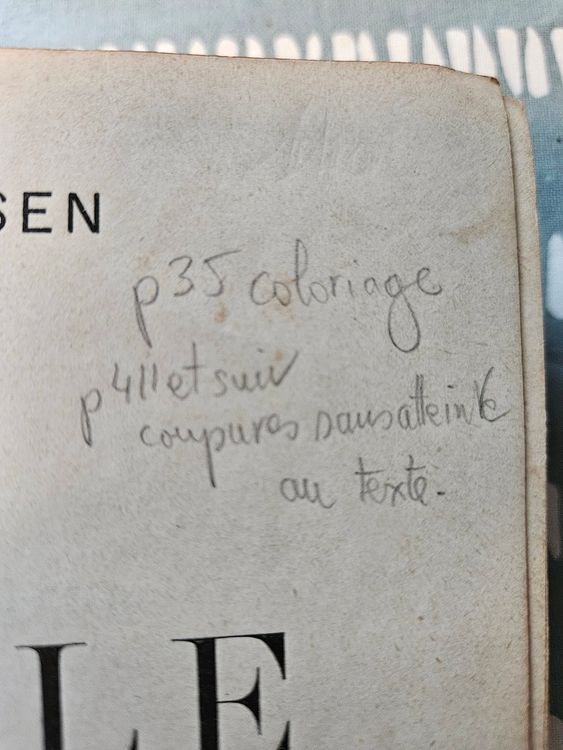 SEN
p35 coloriage
p411 et suiv
coupures sans atteinte
au texte.
LE